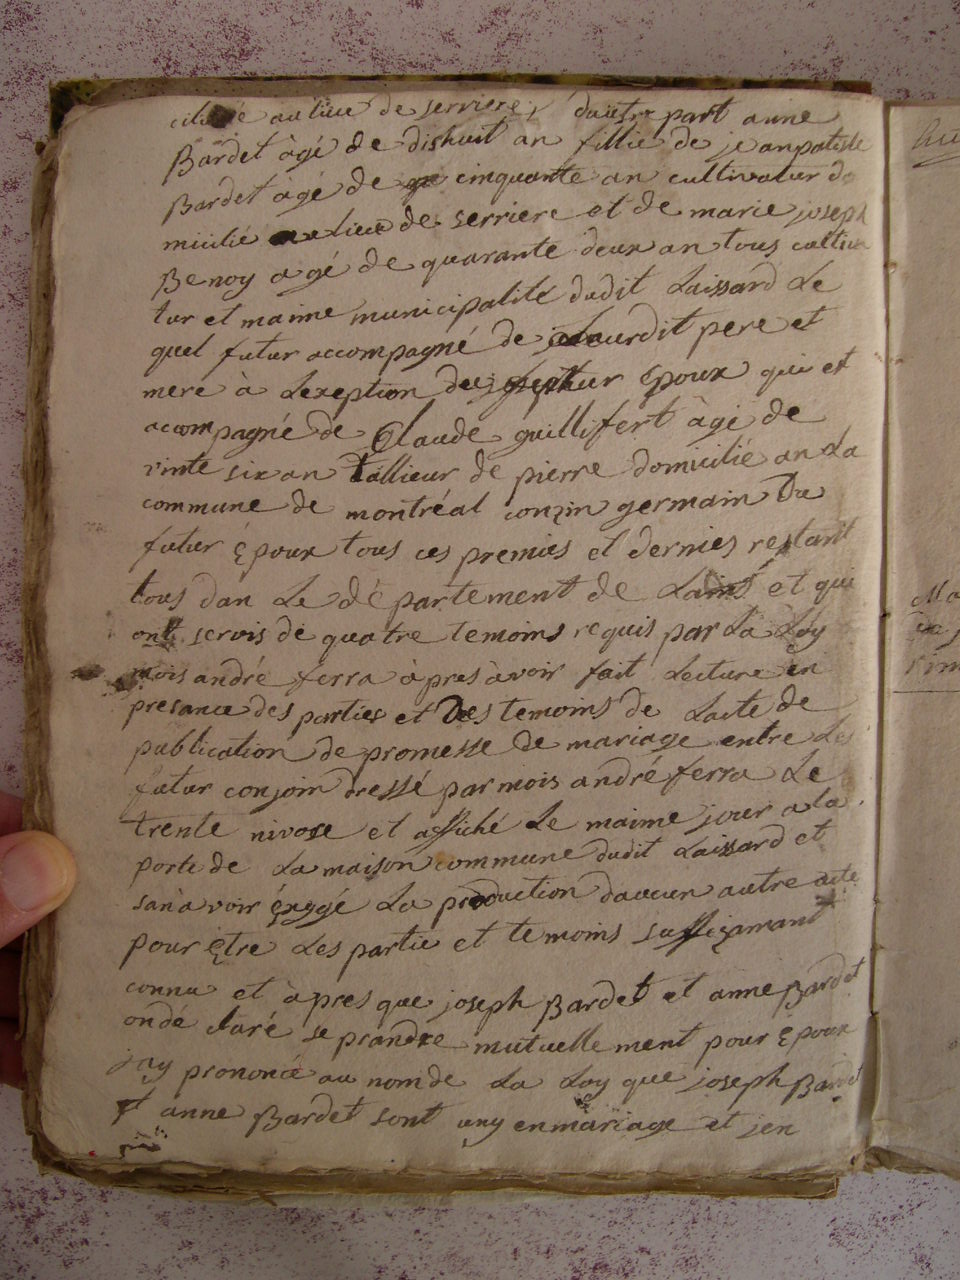 cilié au lieu de serriere, dautre part anne
Bardet àgé de dishuit an fillie de jeanpatiste
Bardet àgé de cinquante an cultivatur do
micilié lieu de serriere et de marie joseph
Benoy agé de quarante deux an tous cultiva
tur et maime municipalité dudit Laissard Le
quel futur accompagné de leurdit pere et
mere à Lexeption du futur Epoux qui et
accompagné de Claude guillifert àgé de
vinte six an tallieur de pierre domicilié an La
commune de montréal conzin germain Du
futur époux tous ces premies et dernies restant
tous dan Le département de Lains et qui
ont servis de quatre temoins requis par La Loy
mois andré ferra àpres àvoir fait Lecture en
presance des parties et Des temoins de Lacte de
publication de promesse de mariage entre Les
futur conjoin dressé par mois andré ferra Le
trente nivose et affiché Le maime jour a la
porte de La maison commune dudit Laissard et
sanàvoir éxggé La production daucun autre acte
pour être Les partie et temoins suffizamant
connu et àpres que joseph Bardet et anne Bardet
ondé claré se prandre mutuellement pour Epoux
jay prononcé au nom de La Loy que joseph Bardet
et anne Bardet sont uny en mariage et jen